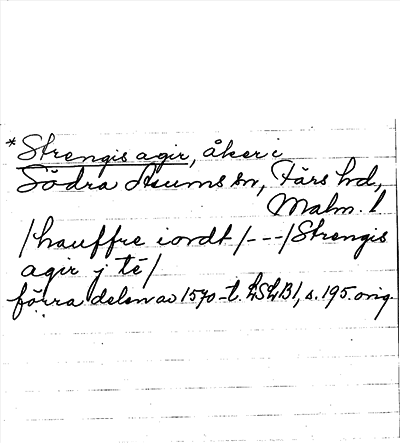 * Strengis agir, åker i
Södra Åsums sn, Färs hd,
Malm. l
/hauffre iordt/---/Strengis
agir j té/
förra delen av 1570-t. LSLB1, s. 195. orig.